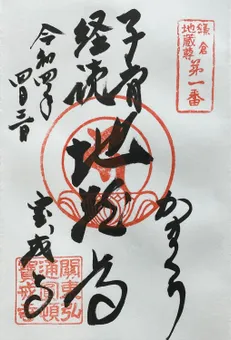 鎌倉
地蔵尊
第一番
かまくら
子育
経読
地蔵尊
宝戒寺
令和四年
四月三日
關東弘
寶戒寺